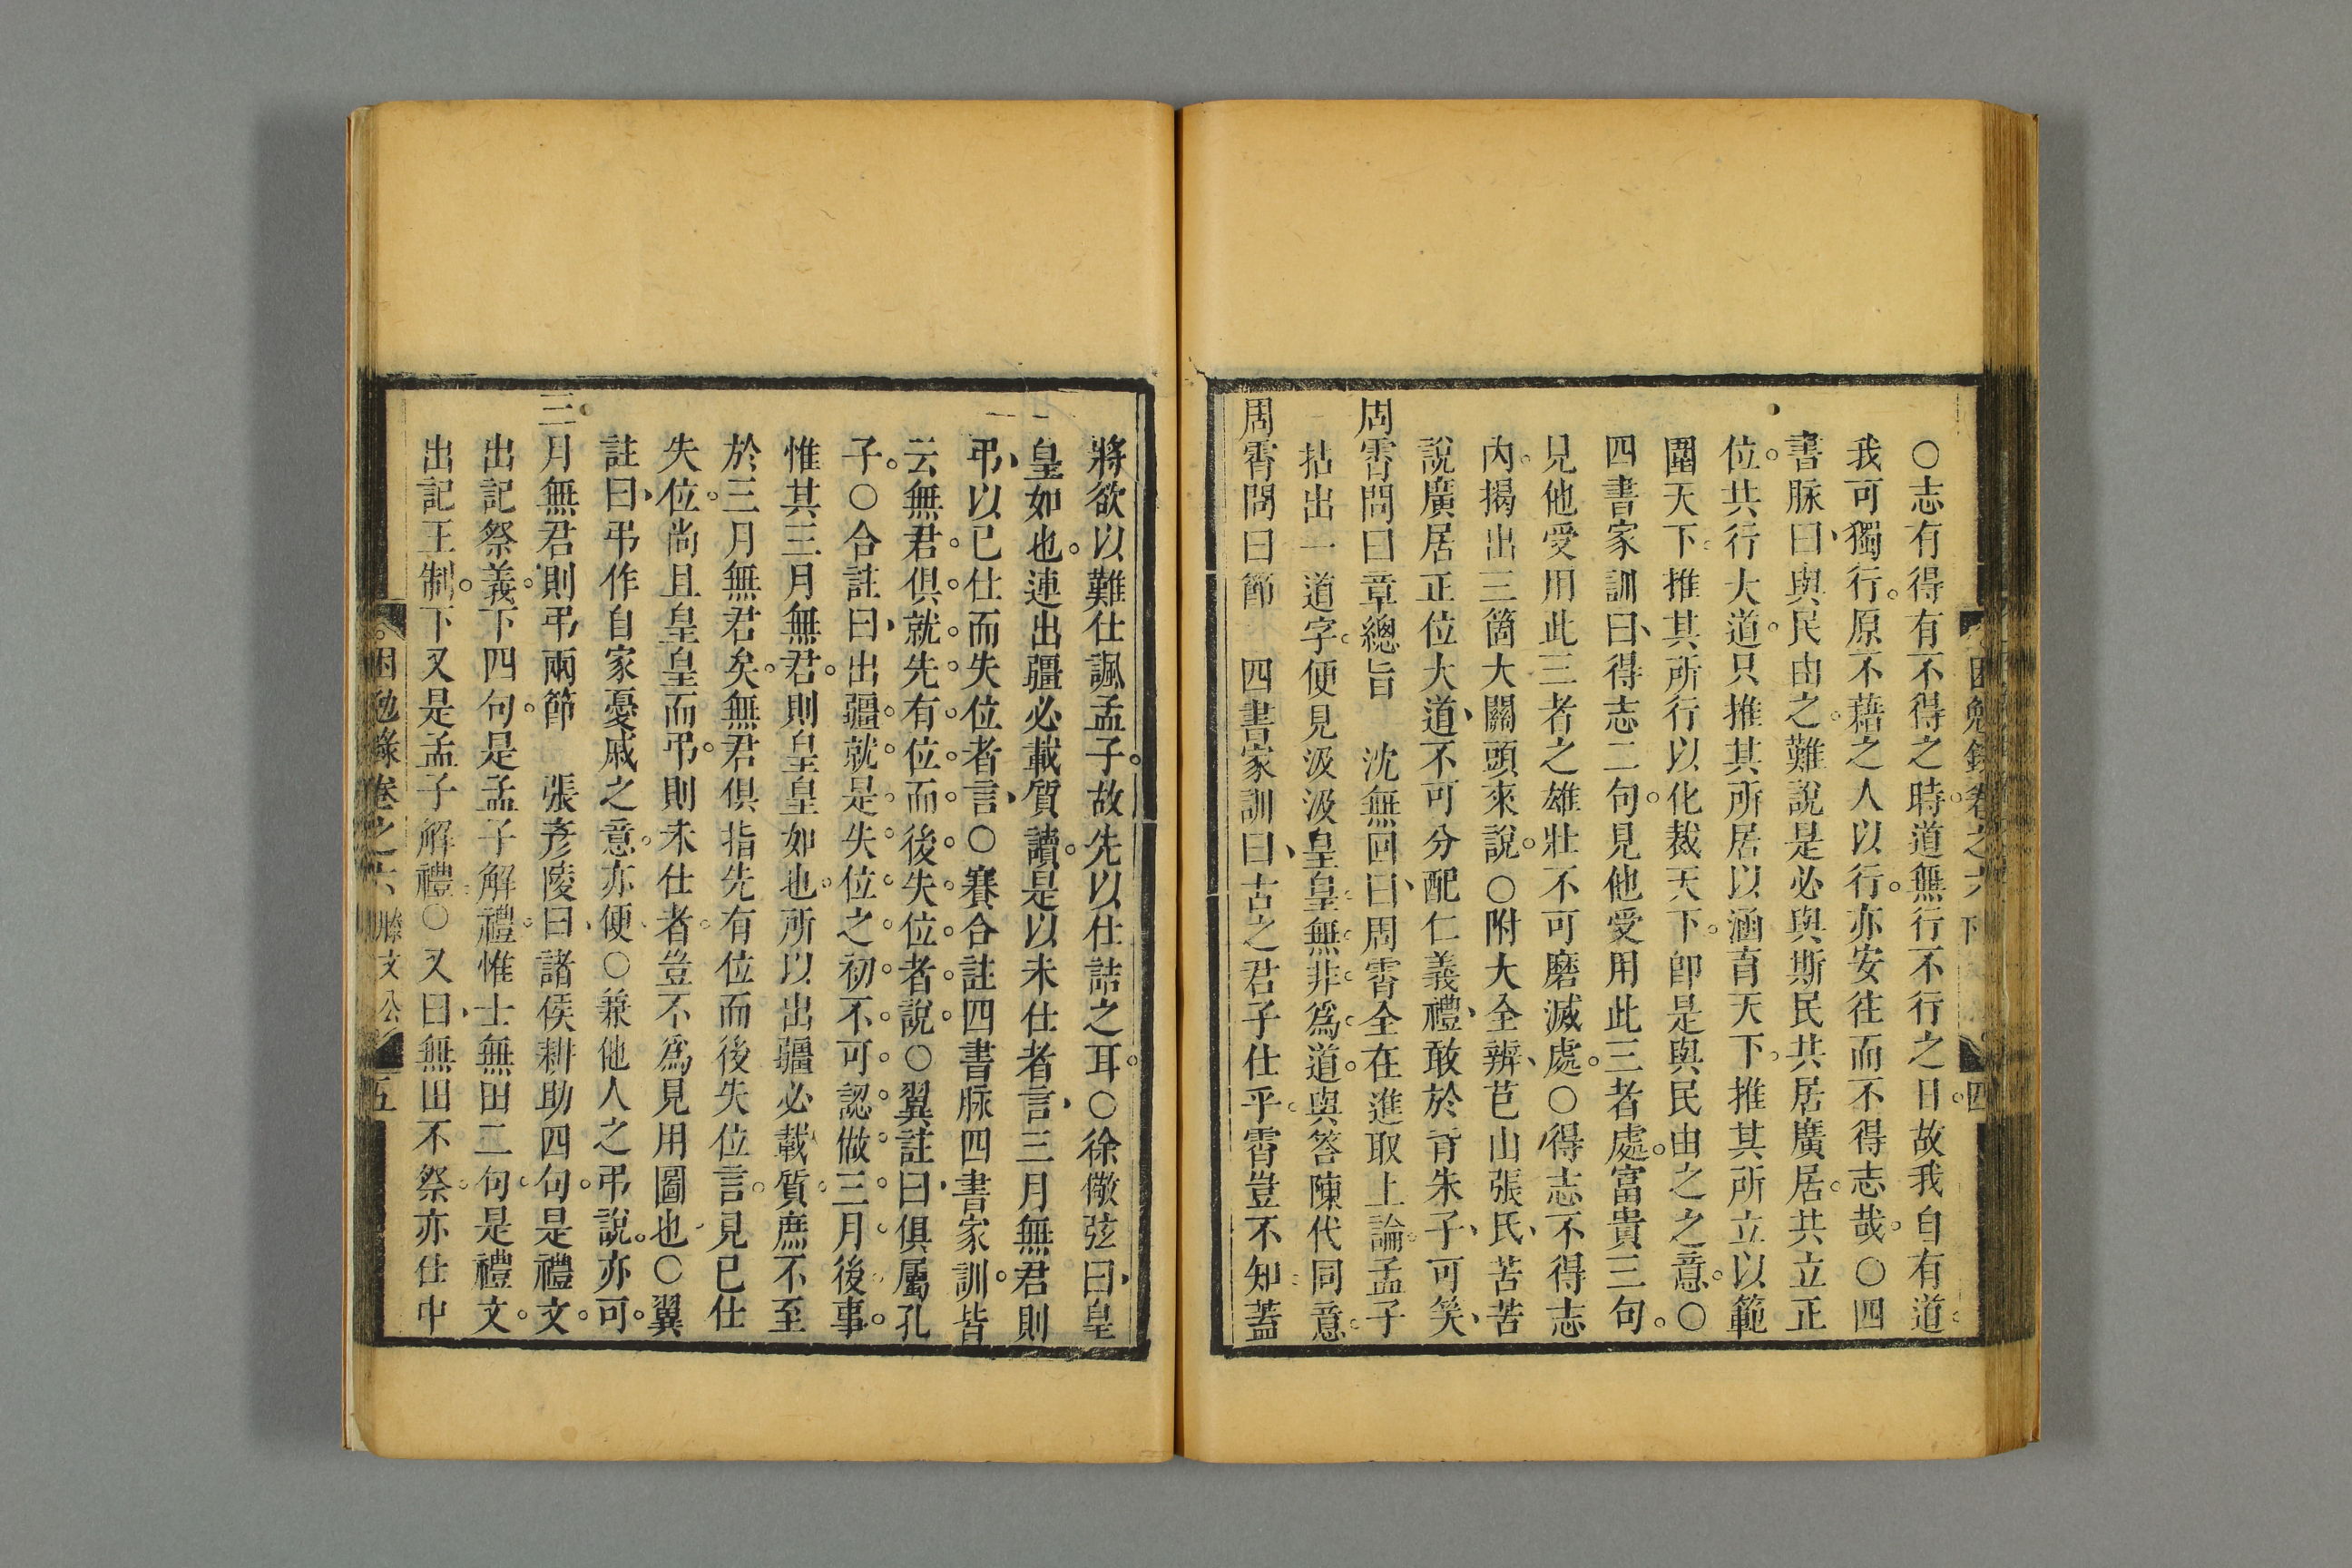 ○志有得有不得之時道無行不行之日故我自有道
我可獨行原不藉之人以行亦安往而不得志哉○四
書脉曰與民由之難說是必與斯民共居廣居共立正
位共行大道只推其所居以涵育天下推其所立以範
圍天下推其所行以化裁天下卽是與民由之之意○
四書家訓曰得志二句見他受用此三者處富貴三句
見他受用此三者之雄壯不可磨滅處○得志不得志
內揭出三箇大關頭來說○附大全辨芑山張氏苦苦
說廣居正位大道不可分配仁義禮敢於背朱子可笑
周霄問曰章總旨　沈無回曰周霄全在進取上論孟子
拈出一道字便見汲汲皇皇無非爲道與答陳代同意
周霄問曰節　四書家訓曰古之君子仕乎霄豈不知蓋
將欲以難仕諷孟子故先以仕詰之耳○徐儆弦曰皇
皇如也連出疆必載質讀是以未仕者言三月無君則
弔以已仕而失位者言○賽合註四書脉四書家訓皆
云無君俱就先有位而後失位者說○翼註曰俱屬孔
子○合註曰出疆就是失位之初不可認做三月後事
惟其三月無君則皇皇如也所以出疆必載質庶不至
於三月無君矣無君俱指先有位而後失位言見已仕
失位尚且皇皇而弔則未仕者豈不爲見用圖也○翼
註曰弔作自家憂戚之意亦便○兼他人之弔說亦可
三月無君則弔兩節　張彥陵曰諸侯耕助四句是禮文
出記祭義下四句是孟子解禮惟士無田二句是禮文
出記王制下又是孟子解禮○又曰無田不祭亦仕中
困勉錄卷之六　滕文公　五